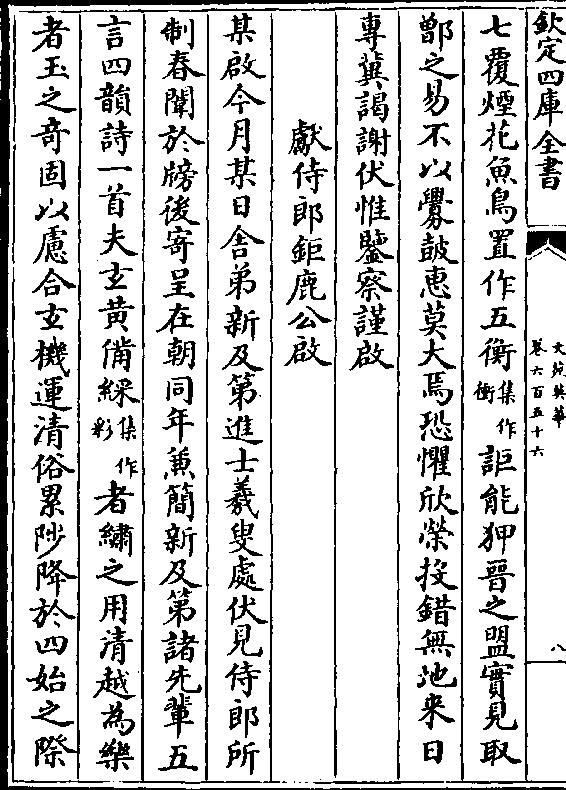 欽定四庫全書
文苑英華
卷六百五十六
八
七覆煙花魚鳥置作五衡集作衝詎能狎晉之盟實見取
鄫之易不以釁鼓惠莫大焉恐懼欣榮投錯無地來日
專冀謁謝伏惟鑒察謹啟
獻侍郎鉅鹿公啟
某啟今月某日舍弟新及第進士羲叟處伏見侍郎所
制春闈於牓後寄呈在朝同年兼簡新及第諸先輩五
言四韻詩一首夫玄黃備綵集作彩者繡之用清越為樂
者玉之奇固以慮合玄機運清俗累陟降於四始之際